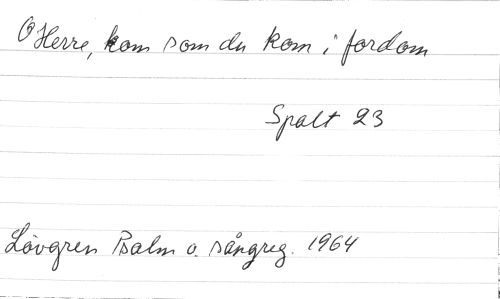 O Herre, kom som du kom i fordom
Spalt 23
Lövgren Psalm o. sångreg. 1964